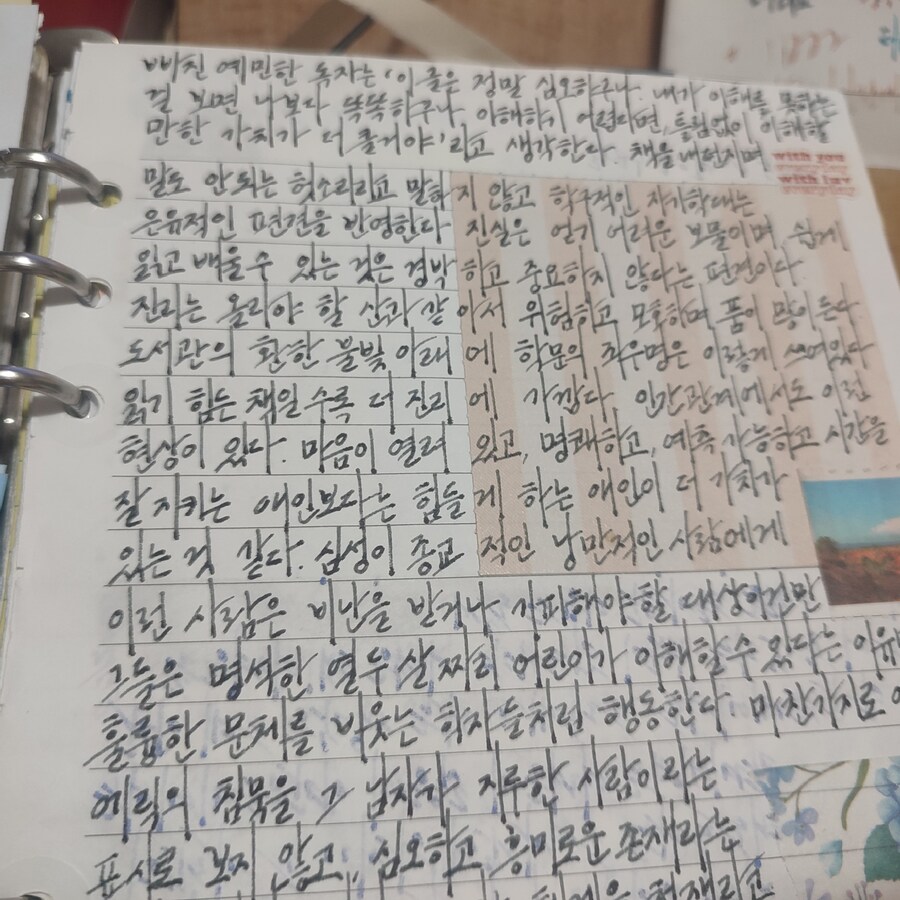 빠진 예민한 독자는 '이 글은 정말 심오하구나. 내가 이해를 못하는
걸 보면 나보다 똑똑하구나. 이해하기 어렵다면, 틀림없이 이해할
만한 가치가 더 클거야'라고 생각한다. 책을 내던지며
with you
with luv
말도 안되는 헛소리라고 말하지 않고 학구적인 자기학대는
은유적인 편견을 반영한다 진실은 얻기 어려운 보물이며, 쉽게
읽고 배울 수 있는 것은 경박하고 중요하지 않다는 편견이다.
진리는 올라야 할 산과 같아서 위험하고 모호하며 품이 많이 든다.
도서관의 환한 불빛 아래에 학문의 좌우명은 이렇게 쓰여있다
읽기 힘든 책일수록 더 진리에 가깝다. 인간관계에서도 이런
현상이 있다. 마음이 열려 있고, 명쾌하고, 예측 가능하고 시간을
잘 지키는 애인보다는 힘들게 하는 애인이 더 가치가
있는 것 같다. 심성이 종교적인 낭만적인 사람에게
이런 사람은 비난을 받거나 기피해야할 대상이건만
그들은 명석한 열두 살 짜리 어린아가 이해할 수 있다는 이유
훌륭한 문체를 비웃는 학자들처럼 행동한다. 마찬가지로
에릭의 침묵을 그 남자가 지루한 사람이라는
표시로 보지 않고, 심오하고 흥미로운 존재라는